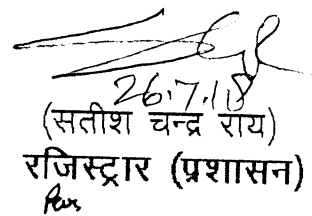 26.7.18
(सतीश चन्द्र राय)
रजिस्ट्रार (प्रशासन)